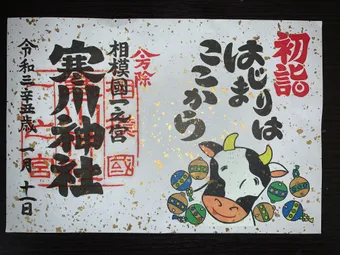 初詣
はじまりは
ここから
八方除
相模國一之宮
寒川神社
令和三辛丑歳 一月十一日